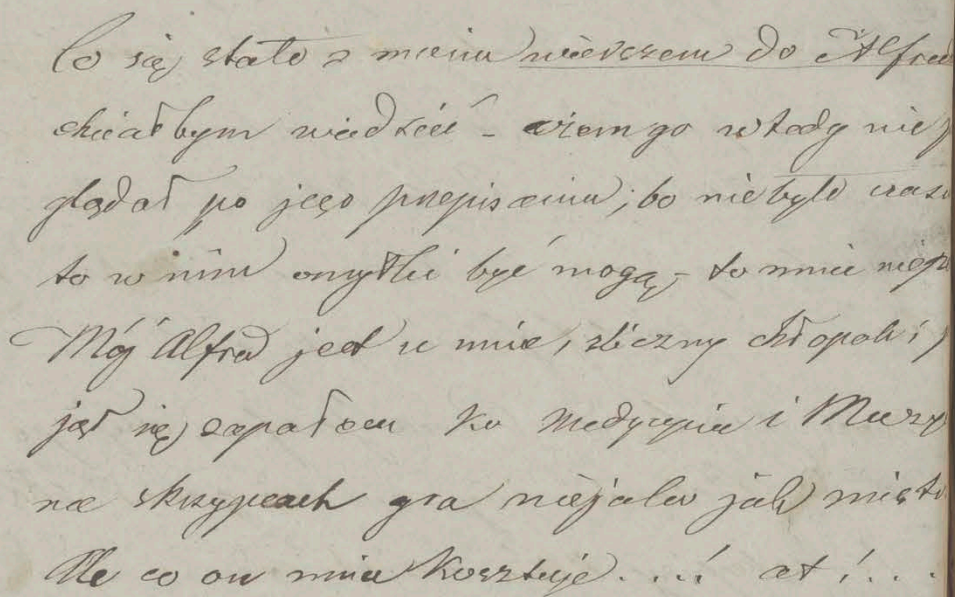 Co się stało z moim wierszem do Alfred
chciałbym wiedzieć - żem go wtedy nie
glądał po jego przepisaniu, bo nie było czasu
to w nim omyłki być mogą, - to mnie
Mój Alfred jest u mnie, śliczny chłopak i
jął się zapałem ku Medycynie i Muzy
na skrzypcach gra niejako jak mistr
Ale co on mnie kosztuje . . . ! at ! . . .